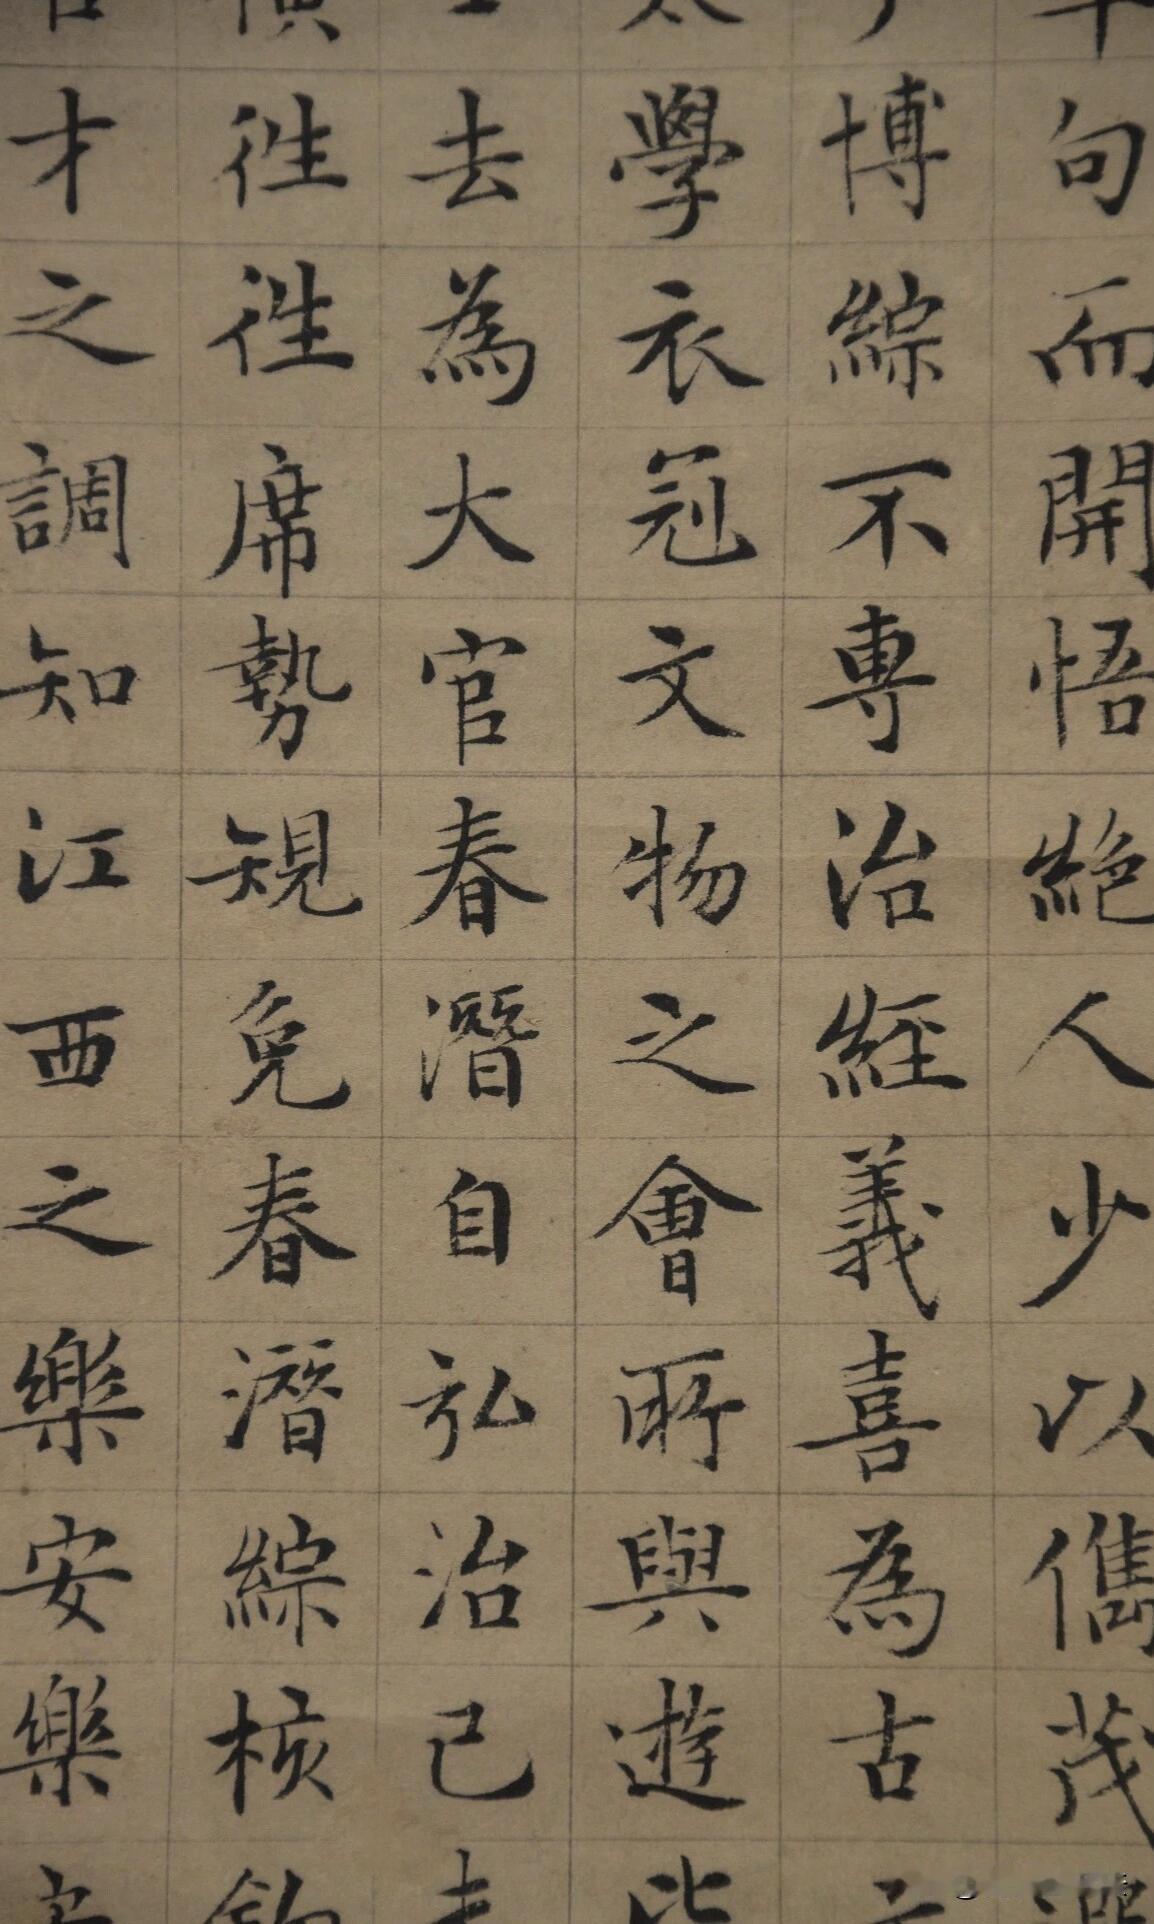 句而開悟絕人少以儁茂
博綜不專治經義喜為古
學衣冠文物之會所與遊
去為大官春潛自弘治已
往往席勢規免春潛綜核
才之調知江西之樂安樂